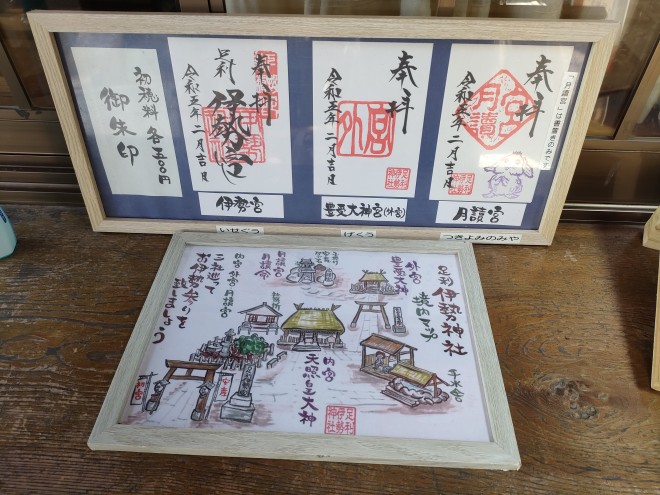 御朱印
初穂料 各五〇〇円
奉拝
足利 伊勢宮
令和五年二月吉日
伊勢宮
いせぐう
奉拝
外宮
令和五年二月吉日
豊受大神宮(外宮)
げくう
奉拝
月讀宮
令和五年二月吉日
月讀宮
つきよみのみや
「月讀宮」は書置きのみです
足利 伊勢神社
境内マップ
手水舎
外宮
豊受大神
内宮
天照皇大神
月讀宮
月讀命
内宮 外宮 月讀宮
三社巡って
お伊勢参りを
致しましょう
足利
伊勢
神社